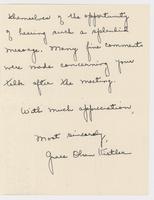 themselves of the opportunity
of hearing such a splendid
message. Many fine comments
were made concerning your
talk after the meeting.
With much appreciation,
Most sincerely,
Grace